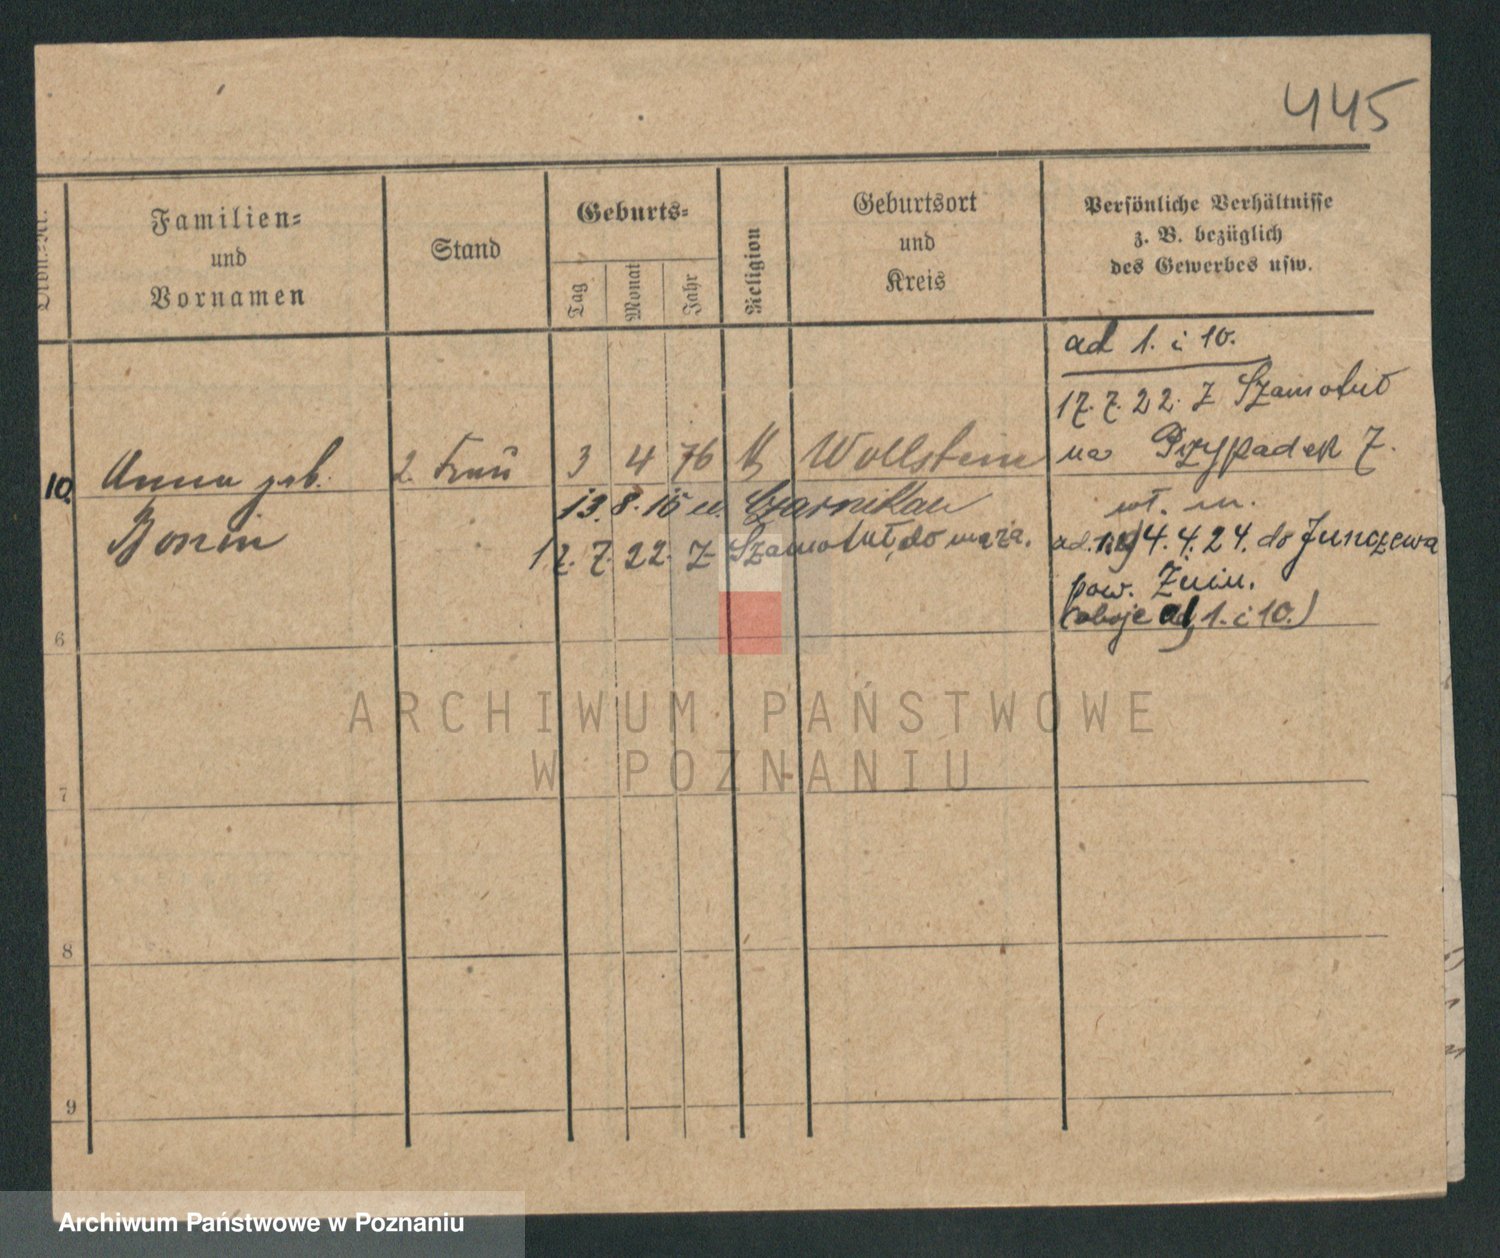 445
Familien-
und
Vornamen
Stand
Geburts-
Tag
Monat
Jahr
Religion
Geburtsort
und
Kreis
Persönliche Verhältnisse
z. B. bezüglich
des Gewerbes usw.
ad 1. i 10.
17. 7. 22. z Szamotuł
na Przypadek 7.
10. Anna geb. 2. Frau 3 4 76 Wollstein
Bonin
13. 8. 15 n. Czarnikau
17. 7. 22. z Szamotuł, do męża.
wł. m.
4. 4. 24. do Juncewa
pow. Żnin.
(oboje ad 1. i 10.)
6
7
8
9
ARCHIWUM PAŃSTWOWE
W POZNANIU
Archiwum Państwowe w Poznaniu